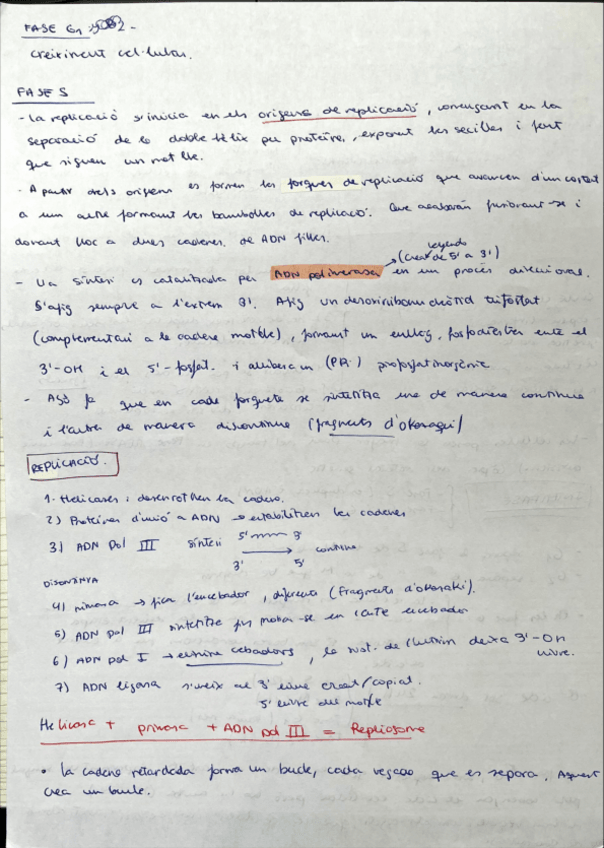 FASE G1 i G2 -
creiximent cel·lular.
FASE S
- La replicació s'inicia en els orígens de replicació, començant en la
separació de la doble hèlix per proteïnes, exposant les senzilles i fent
que siguen un motlle.
- A partir dels orígens es formen les forques de replicació que avancen d'un costat
a un altre formant les bambolles de replicació. Que acabaran fusionant-se i
donant lloc a dues cadenes de ADN filles.
(creat de 5' a 3')
- La síntesi es catalitzada per ADN polimerasa en un procés direccional.
S'afig sempre a l'extrem 3'. Afig un desoxiribonucleòtid trifosfat
(complementari a la cadena motlle), formant un enllaç fosfodièster entre el
3'-OH i el 5'-fosfat. i allibera un (PPi) pirofosfat inorgànic
- Açò fa que en cada forqueta se sintetitza una de manera contínua
i l'altra de manera discontinua (fragments d'Okazaki)
REPLICACIÓ.
1. Helicases: desenrotllen la cadena.
2) Proteïnes d'unió a ADN → estabilitzen les cadenes
3) ADN Pol III síntesi 5' 3'
→ continua
3' 5'
DISCONTÍNUA
4) primasa → fica l'encebador, diferents (fragments d'Okazaki).
5) ADN pol III sintetitza fins trobar-se en l'altre encebador
6) ADN pol I → elimina cebadors, de l'últim deixa 3'-OH
lliure.
7) ADN ligasa s'uneix al 3' lliure creat/copiat.
5' lliure del motlle
Helicasa + primasa + ADN pol III = Replisoma
• La cadena retardada forma un bucle, cada vegada que es separa. Aquest
crea un bucle.